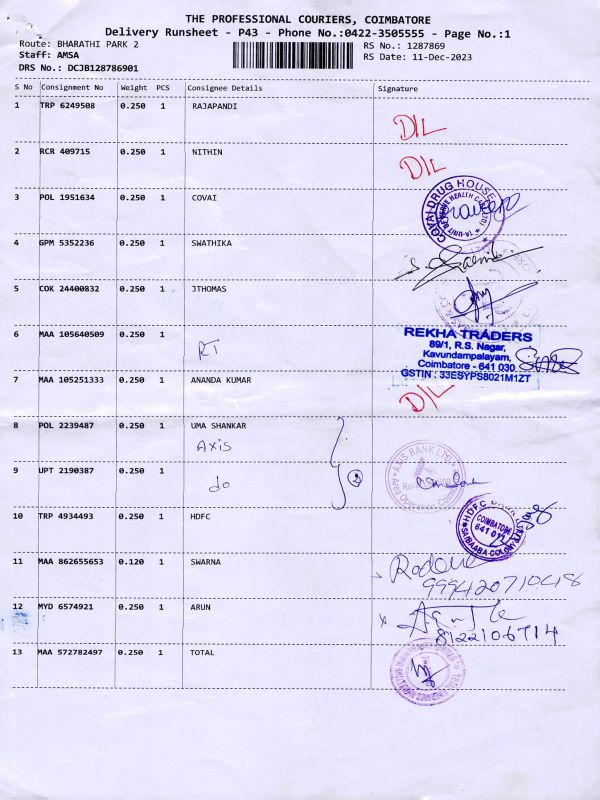 THE PROFESSIONAL COURIERS, COIMBATORE
Delivery Runsheet - P43 - Phone No.:0422-3505555 - Page No.:1
Route: BHARATHI PARK 2 RS No.: 1287869
Staff: AMSA RS Date: 11-Dec-2023
DRS No.: DCJB128786901
S No Consignment No Weight PCS Consignee Details Signature
1 TRP 6249508 0.250 1 RAJAPANDI
D/L
2 RCR 409715 0.250 1 NITHIN
D/L
3 POL 1951634 0.250 1 COVAI
COVAI DRUG HOUSE
4 GPM 5352236 0.250 1 SWATHIKA
5 COK 24400832 0.250 1 JTHOMAS
6 MAA 105640509 0.250 1
RT
REKHA TRADERS
89/1, R.S. Nagar,
Kavundampalayam,
Coimbatore - 641 030
GSTIN : 33ESYPS8021M1ZT
7 MAA 105251333 0.250 1 ANANDA KUMAR
D/L
8 POL 2239487 0.250 1 UMA SHANKAR
AXIS
AXIS BANK LTD
9 UPT 2190387 0.250 1
do
2
10 TRP 4934493 0.250 1 HDFC
HDFC BANK
COIMBATORE
SAIBAABA COLONY
11 MAA 862655653 0.120 1 SWARNA
12 MYD 6574921 0.250 1 ARUN
x
8122106714
13 MAA 572782497 0.250 1 TOTAL